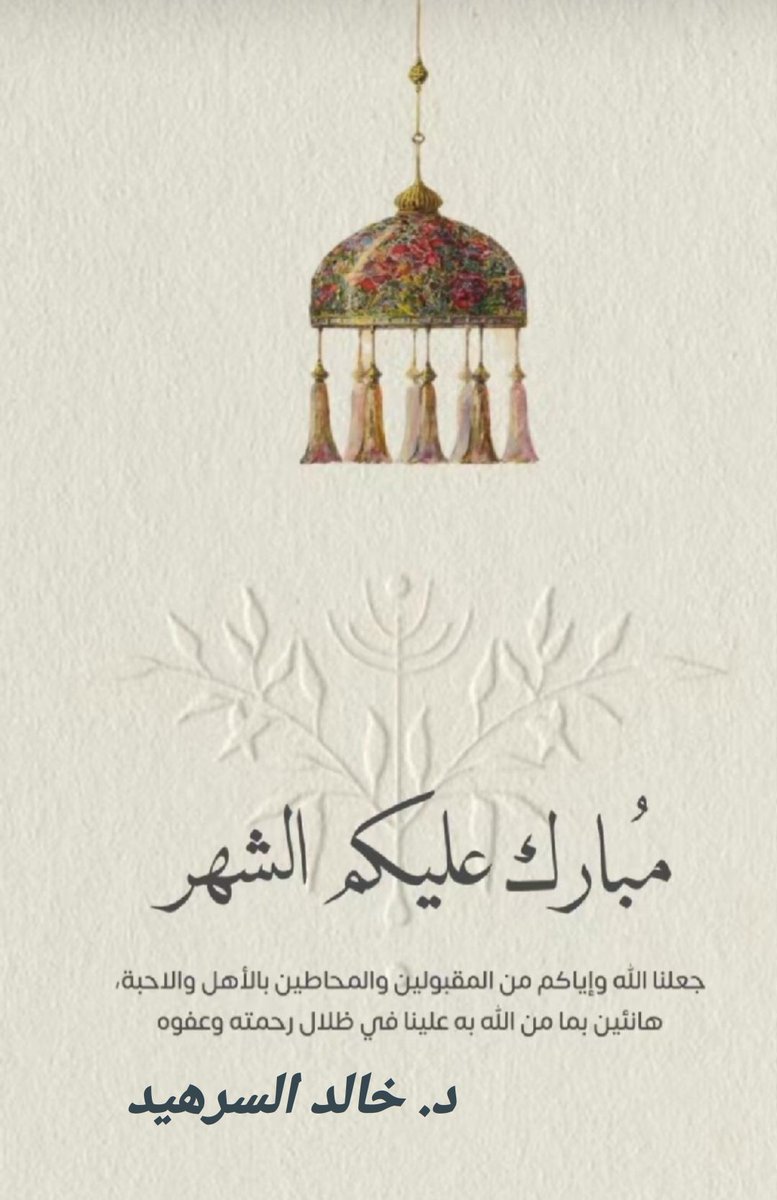 مُبارك عليكم الشهر
جعلنا الله وإياكم من المقبولين والمحاطين بالأهل والاحبة،
هانئين بما من الله به علينا في ظلال رحمته وعفوه
د. خالد السرهيد